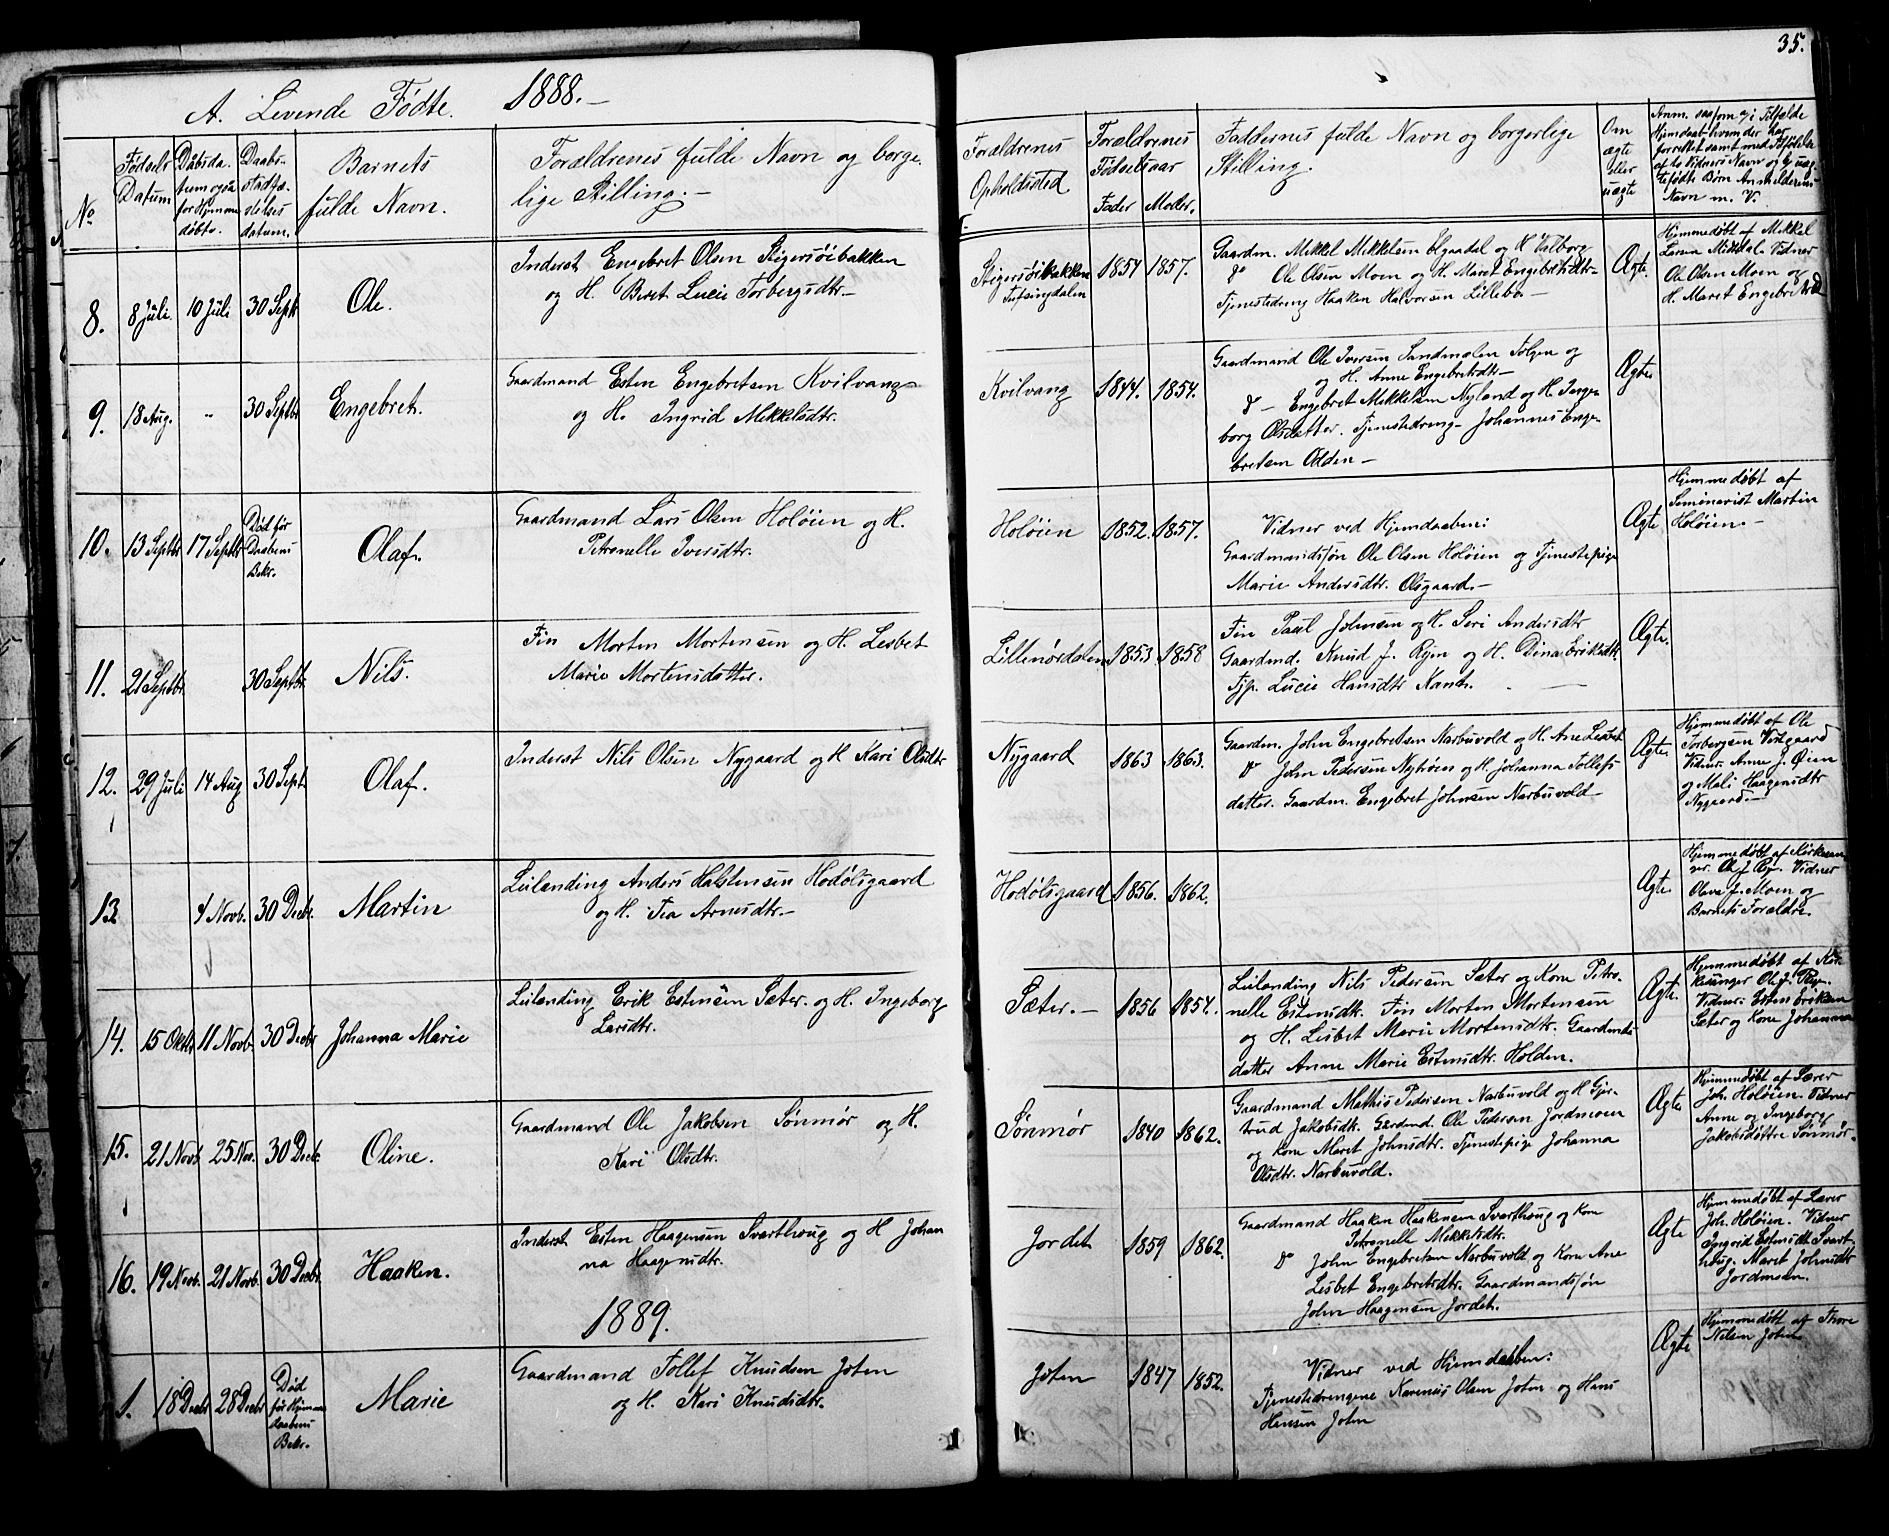 35.
A. Levende Fødte. 1888.—
No
Fødsels
Datum
Daabsda-
tum ogsaa
for Hjemme
døbte.
Daabs-
stadfæ-
stelses
datum.
Barnets
fulde Navn.
Forældrenes fulde Navn og borge-
lige Stilling.—
Forældrenes
Opholdssted
Forældrenes
Fødselsaar
Fader Moder.
Faddernes fulde Navn og borgerlige
Stilling.
Om
ægte
eller
uægte
Navn m. V.
8. 8 Juli. 10 Juli 30 Septbr Ole.
Inderst Engebret Olsen Stigersøibakken
og H. Beret Lucie Torbergsdtr—
Stigersøibakken
Tufsingdalen
1854 1857.
Gaardm. Mikkel Mikkelsen Elgaadal og H. Valborg
do Ole Olsen Moen og H. Maret Engebretsdtr—
Tjenestedreng Haaken Halvorsen Lillebo—
Ægte.
Hjemmedøbt af Mikkel
Larsen Mikkdal. Vidner
Ole Olsen Moen og
H. Maret Engebretsd
9. 18 Aug. " 30 Septbr Engebret.
Gaardmand Esten Engebretsen Kvilvang
og H. Ingrid Mikkelsdtr.
Kvilvang 1844. 1854.
Gaardmand Ole Iversen Sandmælen Tolgen og
og H. Anne Engebretsdtr—
do — Engebret Mikkelsen Nyland og H. Inge-
borg Olsdatter. Tjenestedreng Johannes Enge-
bretsen Odden—
Ægte
10. 13 Septbr 17 Septbr
Død før
Daabens
Bekr.
Olaf.
Gaardmand Lars Olsen Holøien og H.
Petronelle Iversdtr.
Holøien 1852. 1857.
Vidner ved Hjemdaaben:
Gaardmandssøn Ole Olsen Holøien og Tjenestepige
Marie Andersdtr. Olsgaard.—
Ægte
Hjemmedøbt af
Seminarist Martin
Holøien.—
11. 21 Septbr. 30 Septbr. Nils.
Fin Morten Mortensen og H. Lesbet
Marie Mortensdatter.
Lillenørdalen 1853 1858
Fin Paul Johnsen og H. Seri Andersdtr
Gaardmd. Knud J. Ryen og H. Dina Eriksdtr.
Tjp. Lucie Hansdtr Kant.
Ægte.
12. 29 Juli 14 Aug 30 Septbr Olaf.
Inderst Nils Olsen Nygaard og H Kari Olsdtr
Nygaard 1863 1863.
Gaardm. John Engebretsen Narbuvold og H. Ane Lesbet
do John Pedersen Nytrøen og H. Johanna Tollefs
datter. Gaardm. Engebret Johnsen Narbuvold—
Ægte
Hjemmedøbt af Ole
Torbergsen Vistgaard
Vidner. Anne J. Øien
og Mali Haagensdtr
Nygaard.—
13. 4 Novb. 30 Decbr. Martin
Leilending Anders Halstensen Hodølsgaard
og H. Tea Arnesdtr.—
Hodølsgaard 1856. 1862.
Ægte.
Hjemmedøbt af Kirkesan
ger. Ole J Ryen. Vidner
Olava J. Moen og
Barnets Forældre.
14. 15 Oktbr 11 Novb. 30 Decbr Johanna Marie
Leilending Erik Estensen Sæter. og H. Ingeborg
Larsdtr.
Sæter.— 1856 1854.
Leilending Nils Pedersen Sæter og Kone Petro-
nelle Estensdtr. Fin Morten Mortensen
og H. Lisbet Marie Mortensdtr. Gaardmds
datter Anne Marie Estensdtr. Holden.
Ægte.
Hjemmedøbt af Kir-
kesanger Ole J. Ryen.
Vidner. Esten Eriksen
Sæter og Kone Johanna
15. 21 Novb 25 Nov. 30 Decbr. Oline.
Gaardmand Ole Jakobsen Sønmør og H.
Kari Olsdtr.
Sønmør 1840 1862.
Gaardmand Mathis Pedersen Narbuvold og H Gjer-
trud Jakobsdtr. Gardmd. Ole Pedersen Jordmoen
og Kone Maret Johnsdtr. Tjenestepige Johanna
Olsdtr. Narbuvold.
Ægte
Hjemmedøbt af Lærer
Joh. Holøien. Vidner
Anne og Ingeborg
Jakobsdøttre Sønmør.
16. 19 Novb. 21 Novb. 30 Decbr. Haaken.
Inderst Esten Haagensen Svarthoug og H Johan
na Haagensdtr.
Jordet 1859 1862.
Gaardmand Haaken Haakensen Svarthoug og Kone
Petronelle Mikkelsdtr.
do John Engebretsen Narbuvold og Kone Ane
Lesbet Engebretsdtr. Gaardmandssøn
John Haagensen Jordet.
Ægte
Hjemmedøbt af Lærer
Joh. Holøien. Vidner
Ingrid Estensdtr Svart-
houg. Maret Johnsdtr
Jordmoen.
1889.
1. 18 Decbr 28 Decbr
Død
før Hjemme
daabens
Bekr.
Marie
Gaardmand Tollef Knudsen Joten
og H. Kari Knudsdtr.
Joten 1847 1852.
Vidner ved Hjemdaaben:
Tjenestedrengene Karenus Olsen Joten og Hans
Hensen Joten
Ægte
Hjemmedøbt af Thore
Nilsen Joten